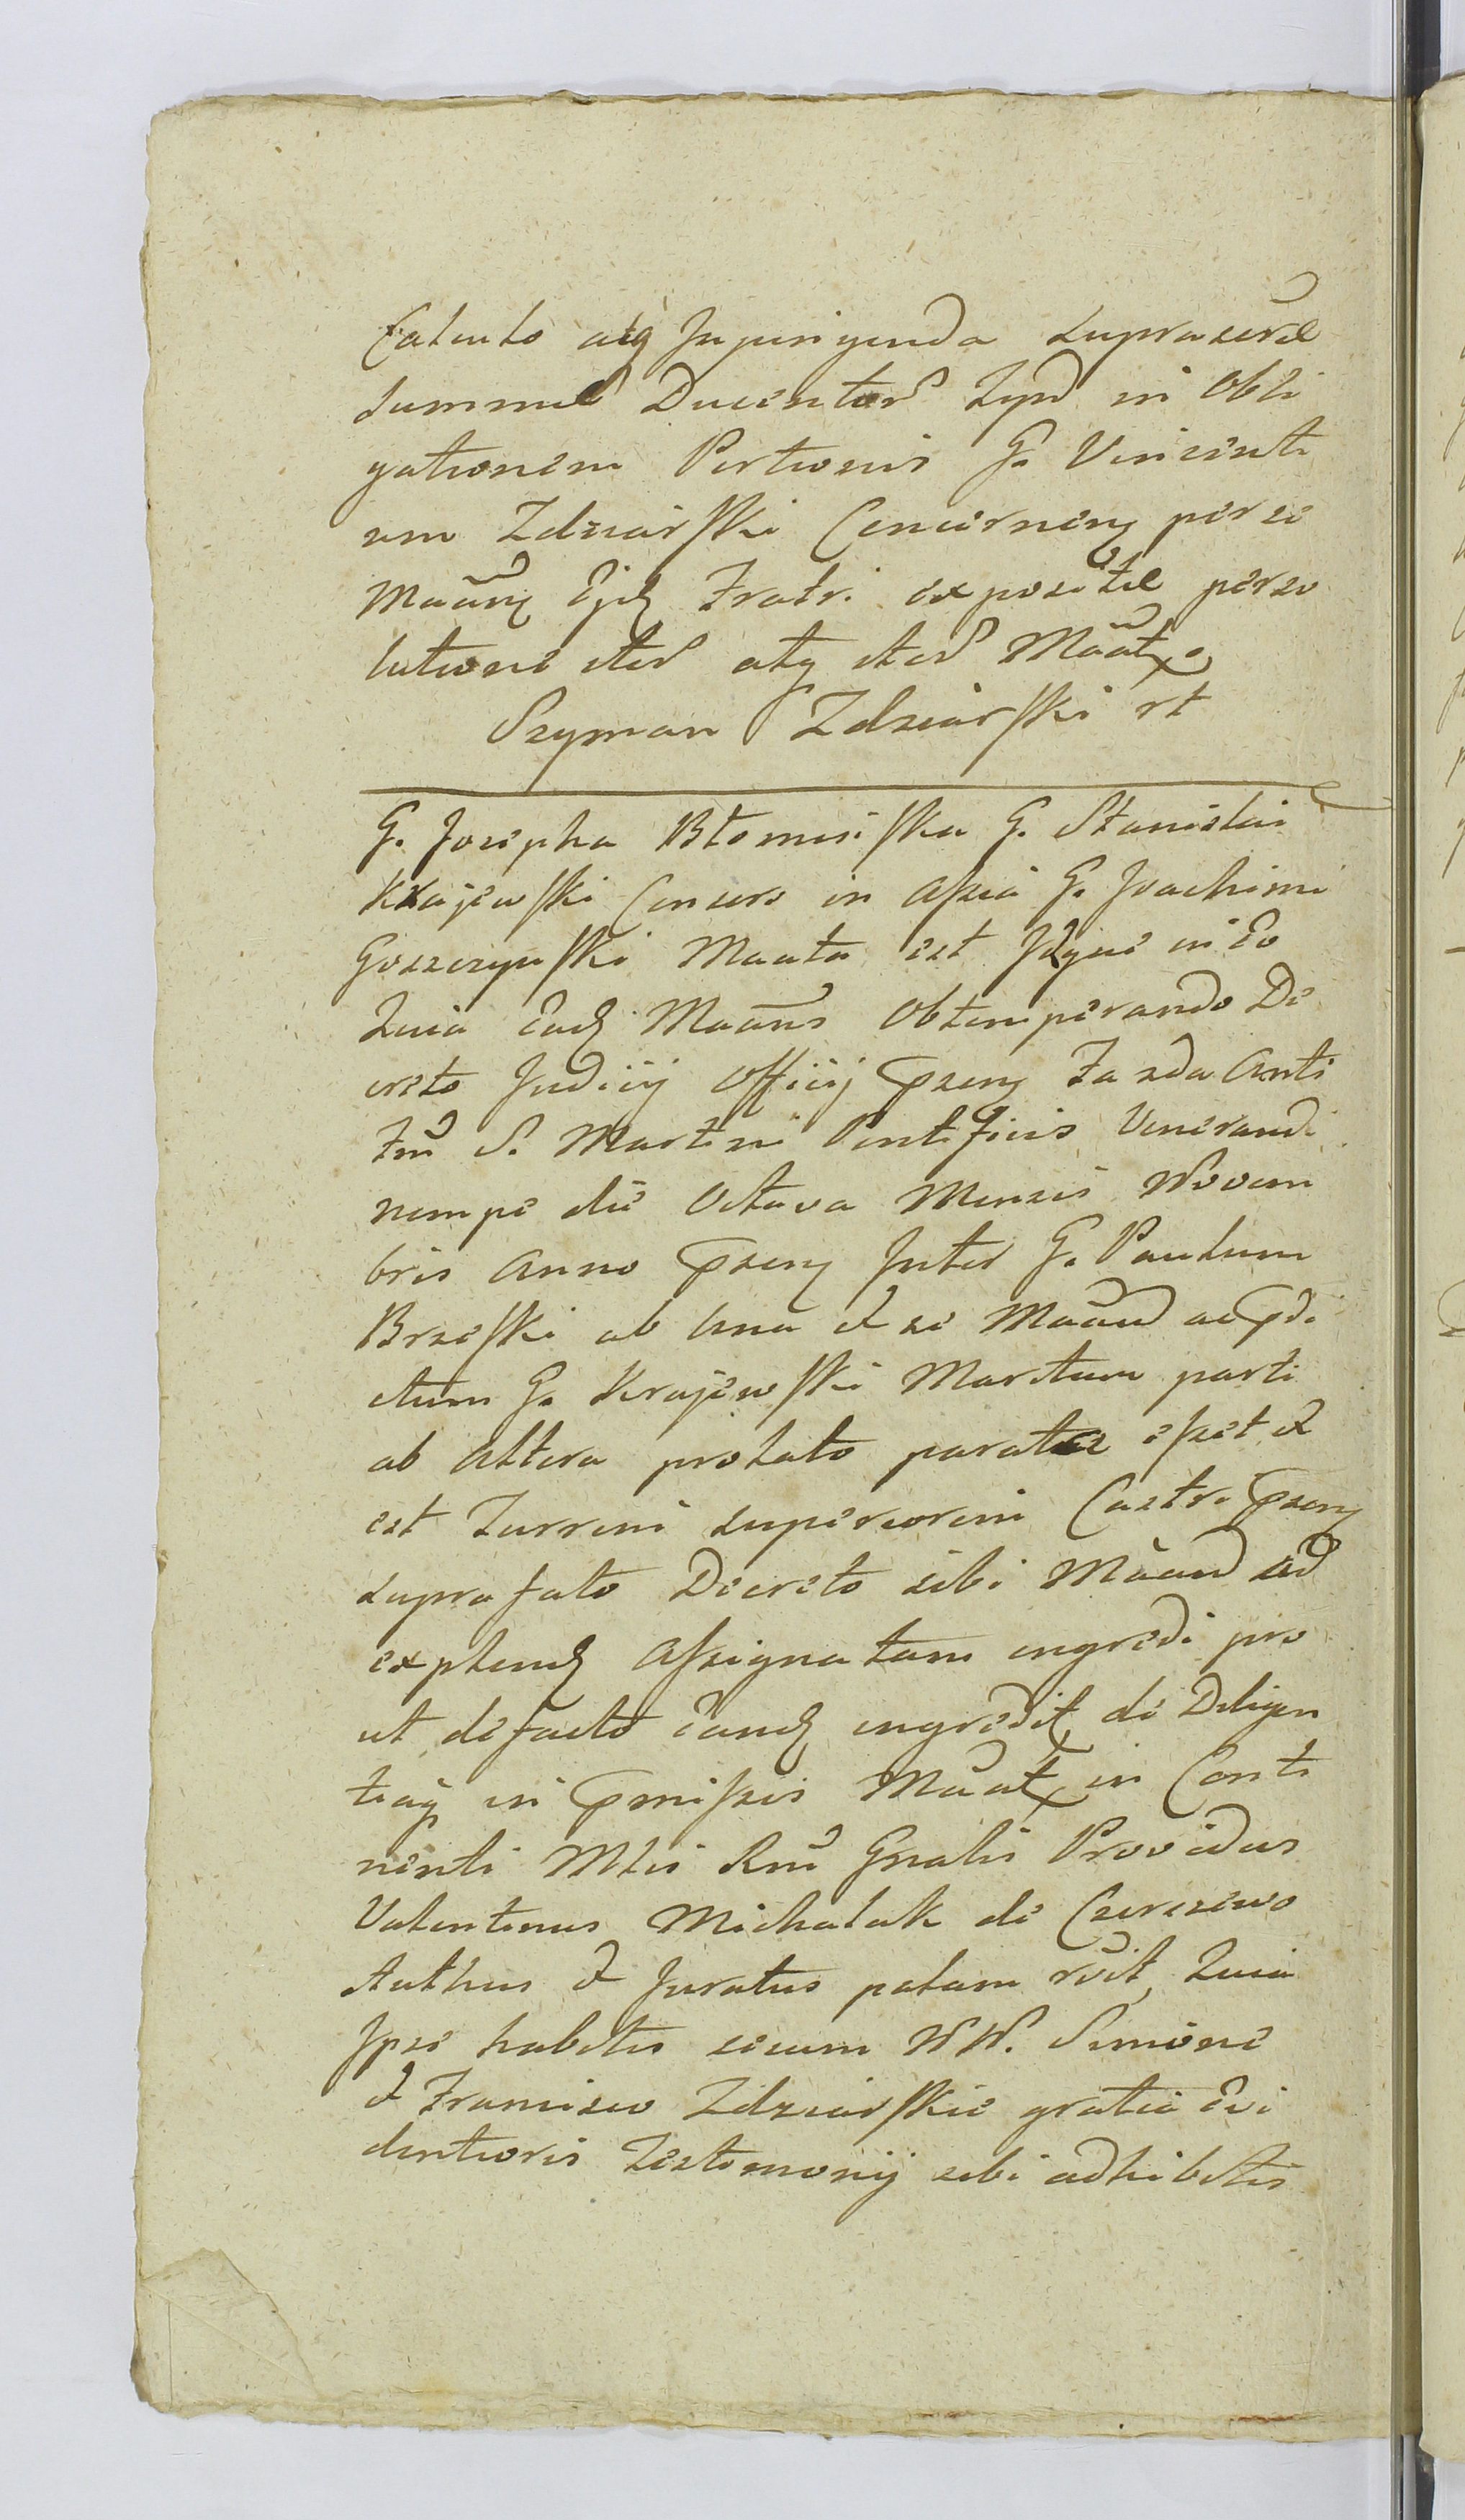 Calculo atq Injungenda suprascræ
summæ Ducentor Typ in Obli
gationem Portionis G. Vincenti
um Zdziarſki Concernenq per se
Maãnq Ejq Fratri expositæ perso
lutione iter atq iter Maãtx.
Szyman Zdziarſki rt
G. Josepha Błomisſka G. Stanislai
Krajewſki Consors in aſsia G. Joachimi
Goszczynſki Maata est Idque in eo
Quia eadq Maãns Obtemperando De
creto Judicij Officij Pseng Fasda Anti
Fm S. Martini Pontificis Venerandi
nempe die Octava Mensis Novem
bris Anno Pseng Inter G. Paulum
Brzeſki ab una & se Maãnd ac pdi
ctum G. Krajewſki Maritum parti
ab altera prolato parata eſset &
est Turrim superiorem Castri Pseng
suprafato Decreto sibi Maand ad
explendq Aſsignatam ingredi pro
ut de facto eandq ingredit, de Diligen
tiaq in Pmiſsis Maãtx in Conti
nenti Mlis Rm Gnalis Providus
Valentinus Michalak de Czerszewo
Authus & Juratus palam rũit, Quia
Ipse habitis secum NN. Simone
& Francisco Zdziarſkie gratia Evi
dentioris Testimonij sibi adhibitis